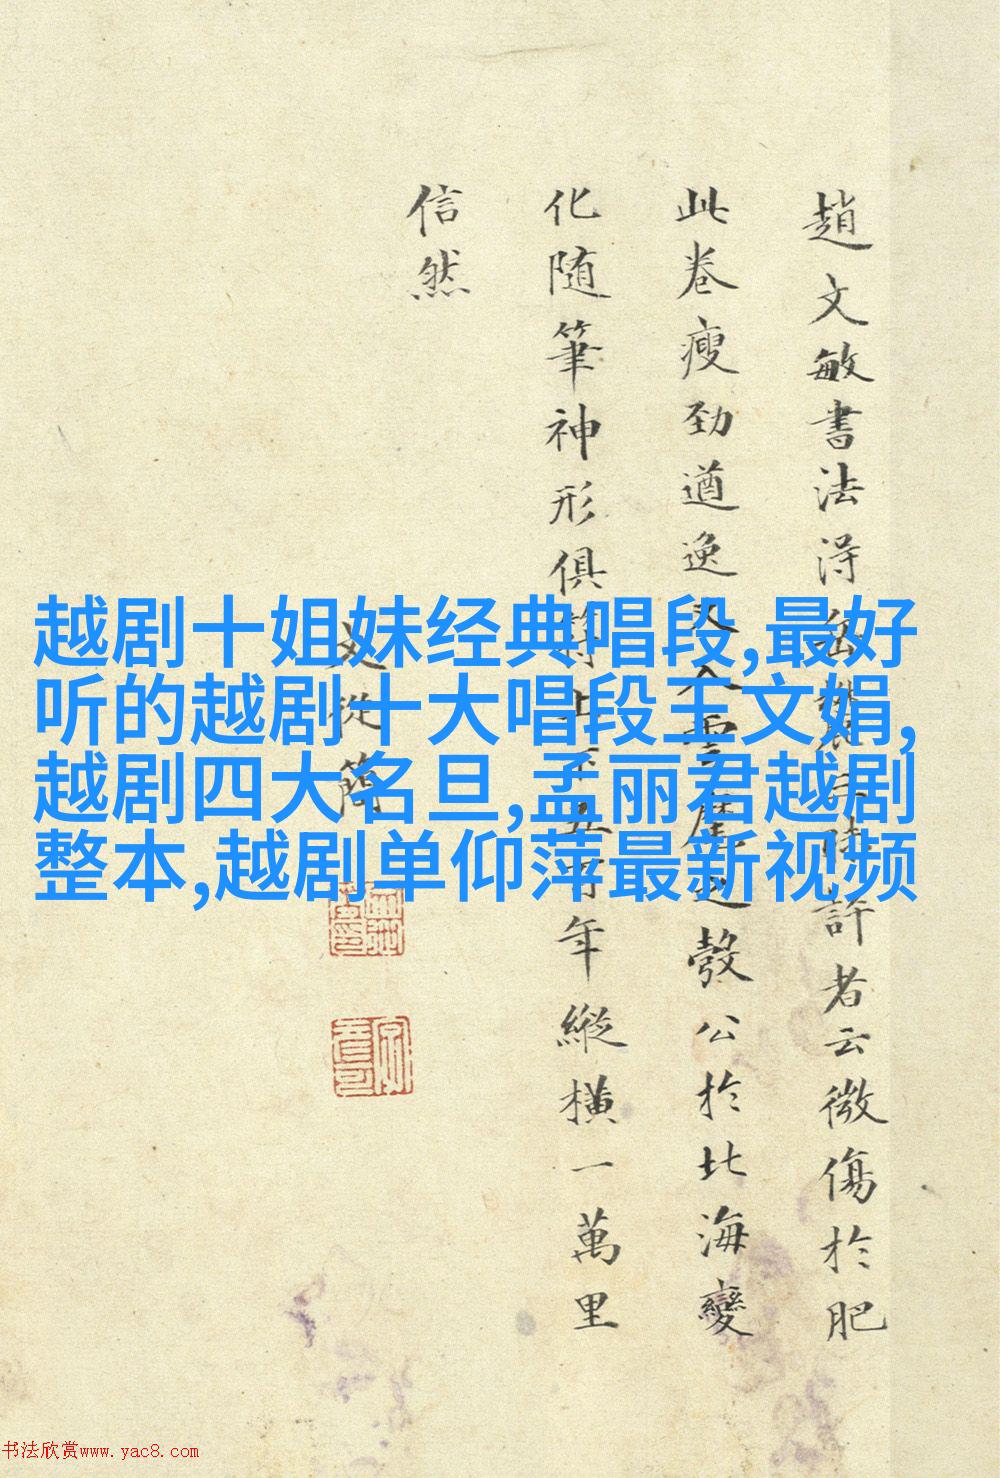 趙文敏書法淂許者云微傷於肥
此卷瘦劲遒逸入雲麾之彀公於北海變
化随筆神形俱上下五百年縱橫一萬里
信然
文從簡
越剧十姐妹经典唱段,最好
听的越剧十大唱段王文娟,
越剧四大名旦,孟丽君越剧
整本,越剧单仰萍最新视频
书法欣赏www.yac8.com